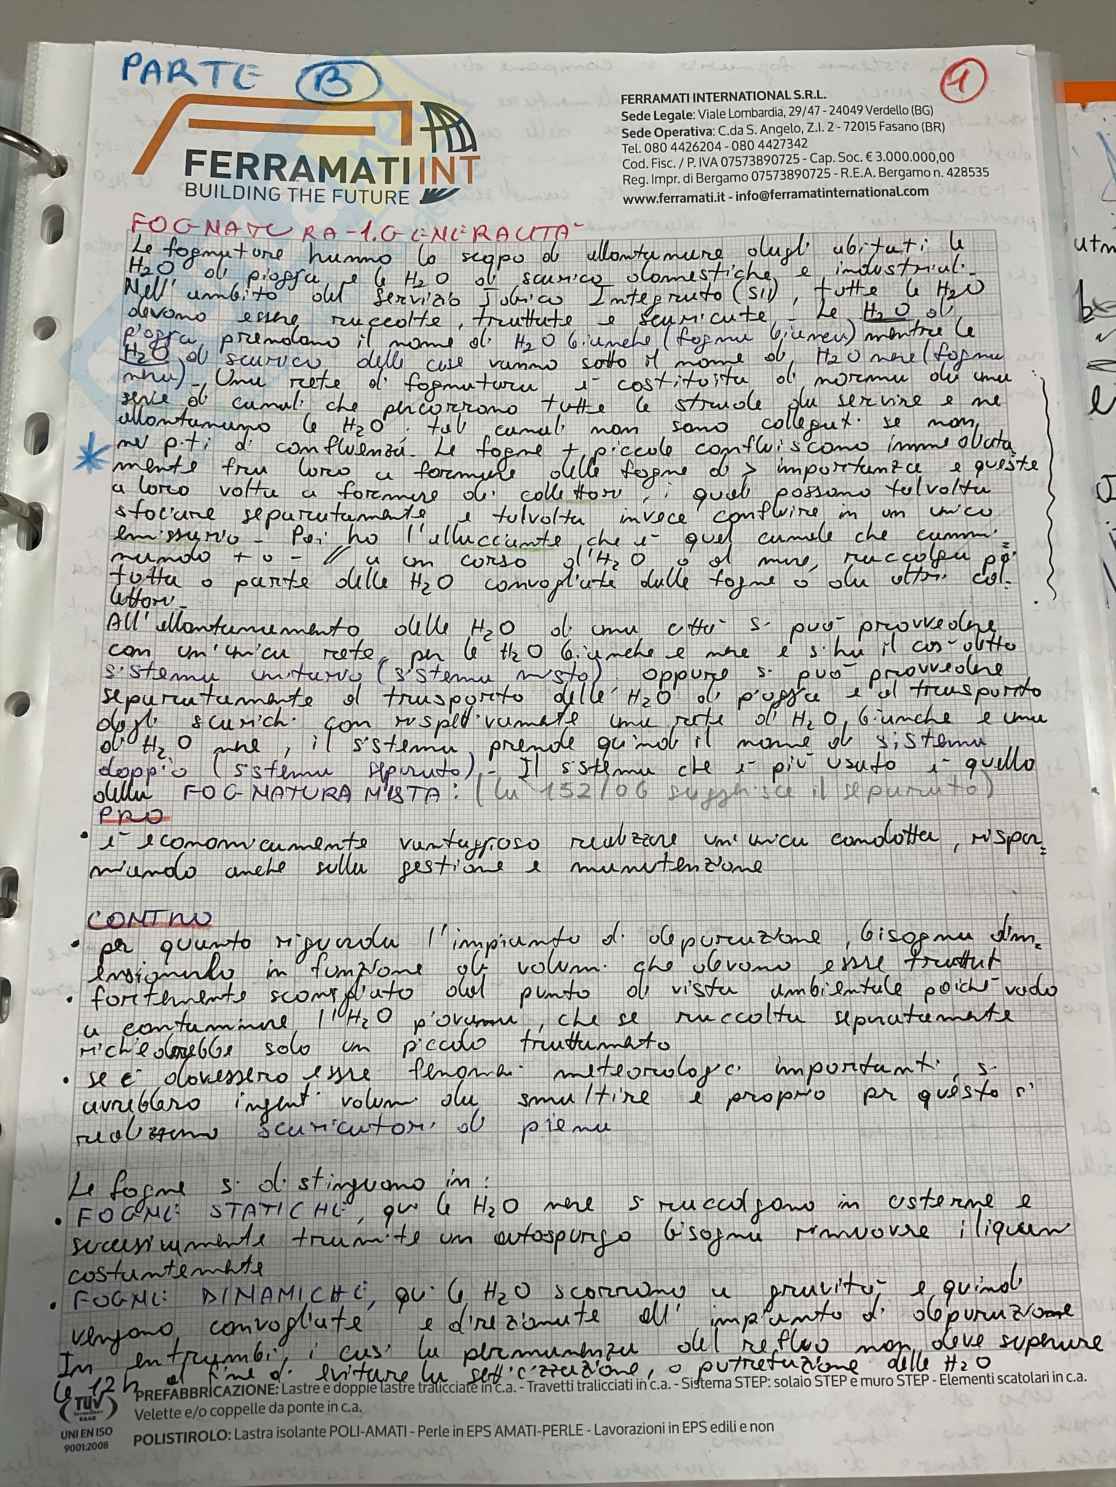 PARTE B
1
FERRAMATI INT
BUILDING THE FUTURE
FERRAMATI INTERNATIONAL S.R.L.
Sede Legale: Viale Lombardia, 29/47 - 24049 Verdello (BG)
Sede Operativa: C.da S. Angelo, Z.I. 2 - 72015 Fasano (BR)
Tel. 080 4426204 - 080 4427342
Cod. Fisc. / P. IVA 07573890725 - Cap. Soc. € 3.000.000,00
Reg. Impr. di Bergamo 07573890725 - R.E.A. Bergamo n. 428535
www.ferramati.it - info@ferramatinternational.com
FOGNATURA - 1. GENERALITA'
Le fognature hanno lo scopo di allontanare dagli abitati le
H2O di pioggia e le H2O di scarico domestiche e industriali.
Nell'ambito del servizio Idrico Integrato (SII), tutte le H2O
devono essere raccolte, trattate e scaricate. Le H2O di
pioggia, prendono il nome di H2O bianche (fogna bianca) mentre le
H2O di scarico delle case vanno sotto il nome di H2O nere (fogna
nera). Una rete di fognatura è costituita di norma da una
serie di canali che percorrono tutte le strade da servire e ne
allontanano le H2O. tali canali non sono collegati se non
nei p.ti di confluenza. Le fogne + piccole confluiscono immediata
mente tra loro a formare delle fogne di > importanza e queste
a loro volta a formare di collettori, i quali possono talvolta
sfociare separatamente e talvolta invece confluire in un unico
emissario. Poi ho l'allacciante, che è quel canale che cammi=
nando + o - // a un corso d'H2O o al mare, raccoglie
tutta o parte delle H2O convogliate dalle fogne o da altri col-
lettori.
All'allontanamento delle H2O di una città si può provvedere
con un'unica rete, per le H2O bianche e nere e si ha il così detto
sistema unitario (sistema misto) oppure si può provvedere
separatamente al trasporto delle H2O di pioggia e al trasporto
degli scarichi con rispettivamente una rete di H2O bianche e una
di H2O nere, il sistema prende quindi il nome di sistema
doppio (sistema separato). Il sistema che è più usato è quello
della FOGNATURA MISTA: (la 152/06 suggerisce il separato)
PRO
• è economicamente vantaggioso realizzare un'unica condotta, rispar=
miando anche sulla gestione e manutenzione
CONTRO
• per quanto riguarda l'impianto di depurazione, bisogna dim=
ensionarlo in funzione dei volumi che devono essere trattati
• fortemente sconsigliato dal punto di vista ambientale poiché vado
a contaminare l'H2O piovana, che se raccolta separatamente
richiederebbe solo un piccolo trattamento
• se ci dovessero essere fenomeni meteorologici importanti, si
avrebbero ingenti volumi da smaltire e proprio per questo si
realizzano scaricatori di piena
Le fogne si distinguono in:
• FOGNE STATICHE, qui le H2O nere si raccolgono in cisterne e
successivamente tramite un autospurgo bisogna rimuovere i liquami
costantemente
• FOGNE DINAMICHE, qui le H2O scorrono a gravità e quindi
vengono convogliate e direzionate all'impianto di depurazione
In entrambi i casi la permanenza del refluo non deve superare
le 12 h al fine di evitare la setticizzazione, o putrefazione delle H2O
TÜV
UNI EN ISO
9001:2008
PREFABBRICAZIONE: Lastre e doppie lastre tralicciate in c.a. - Travetti tralicciati in c.a. - Sistema STEP: solaio STEP e muro STEP - Elementi scatolari in c.a.
Velette e/o coppelle da ponte in c.a.
POLISTIROLO: Lastra isolante POLI-AMATI - Perle in EPS AMATI-PERLE - Lavorazioni in EPS edili e non